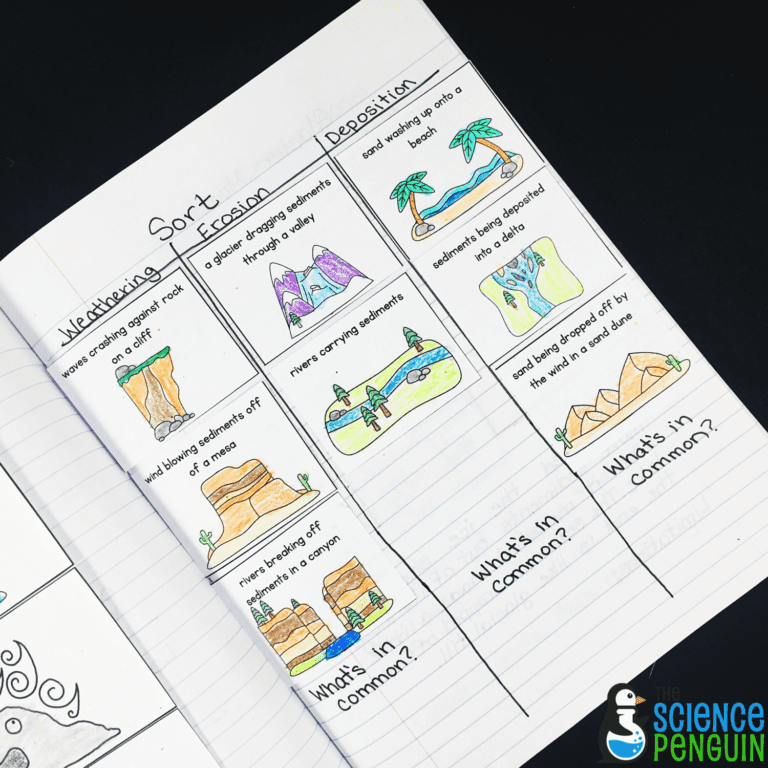 Sort
Weathering
waves crashing against rock
on a cliff
wind blowing sediments off
of a mesa
rivers breaking off
sediments in a canyon
What's in
common?
Erosion
a glacier dragging sediments
through a valley
rivers carrying sediments
What's in
common?
Deposition
sand washing up onto a
beach
sediments being deposited
into a delta
sand being dropped off by
the wind in a sand dune
What's in
common?
THE
SCIENCE
PENGUIN